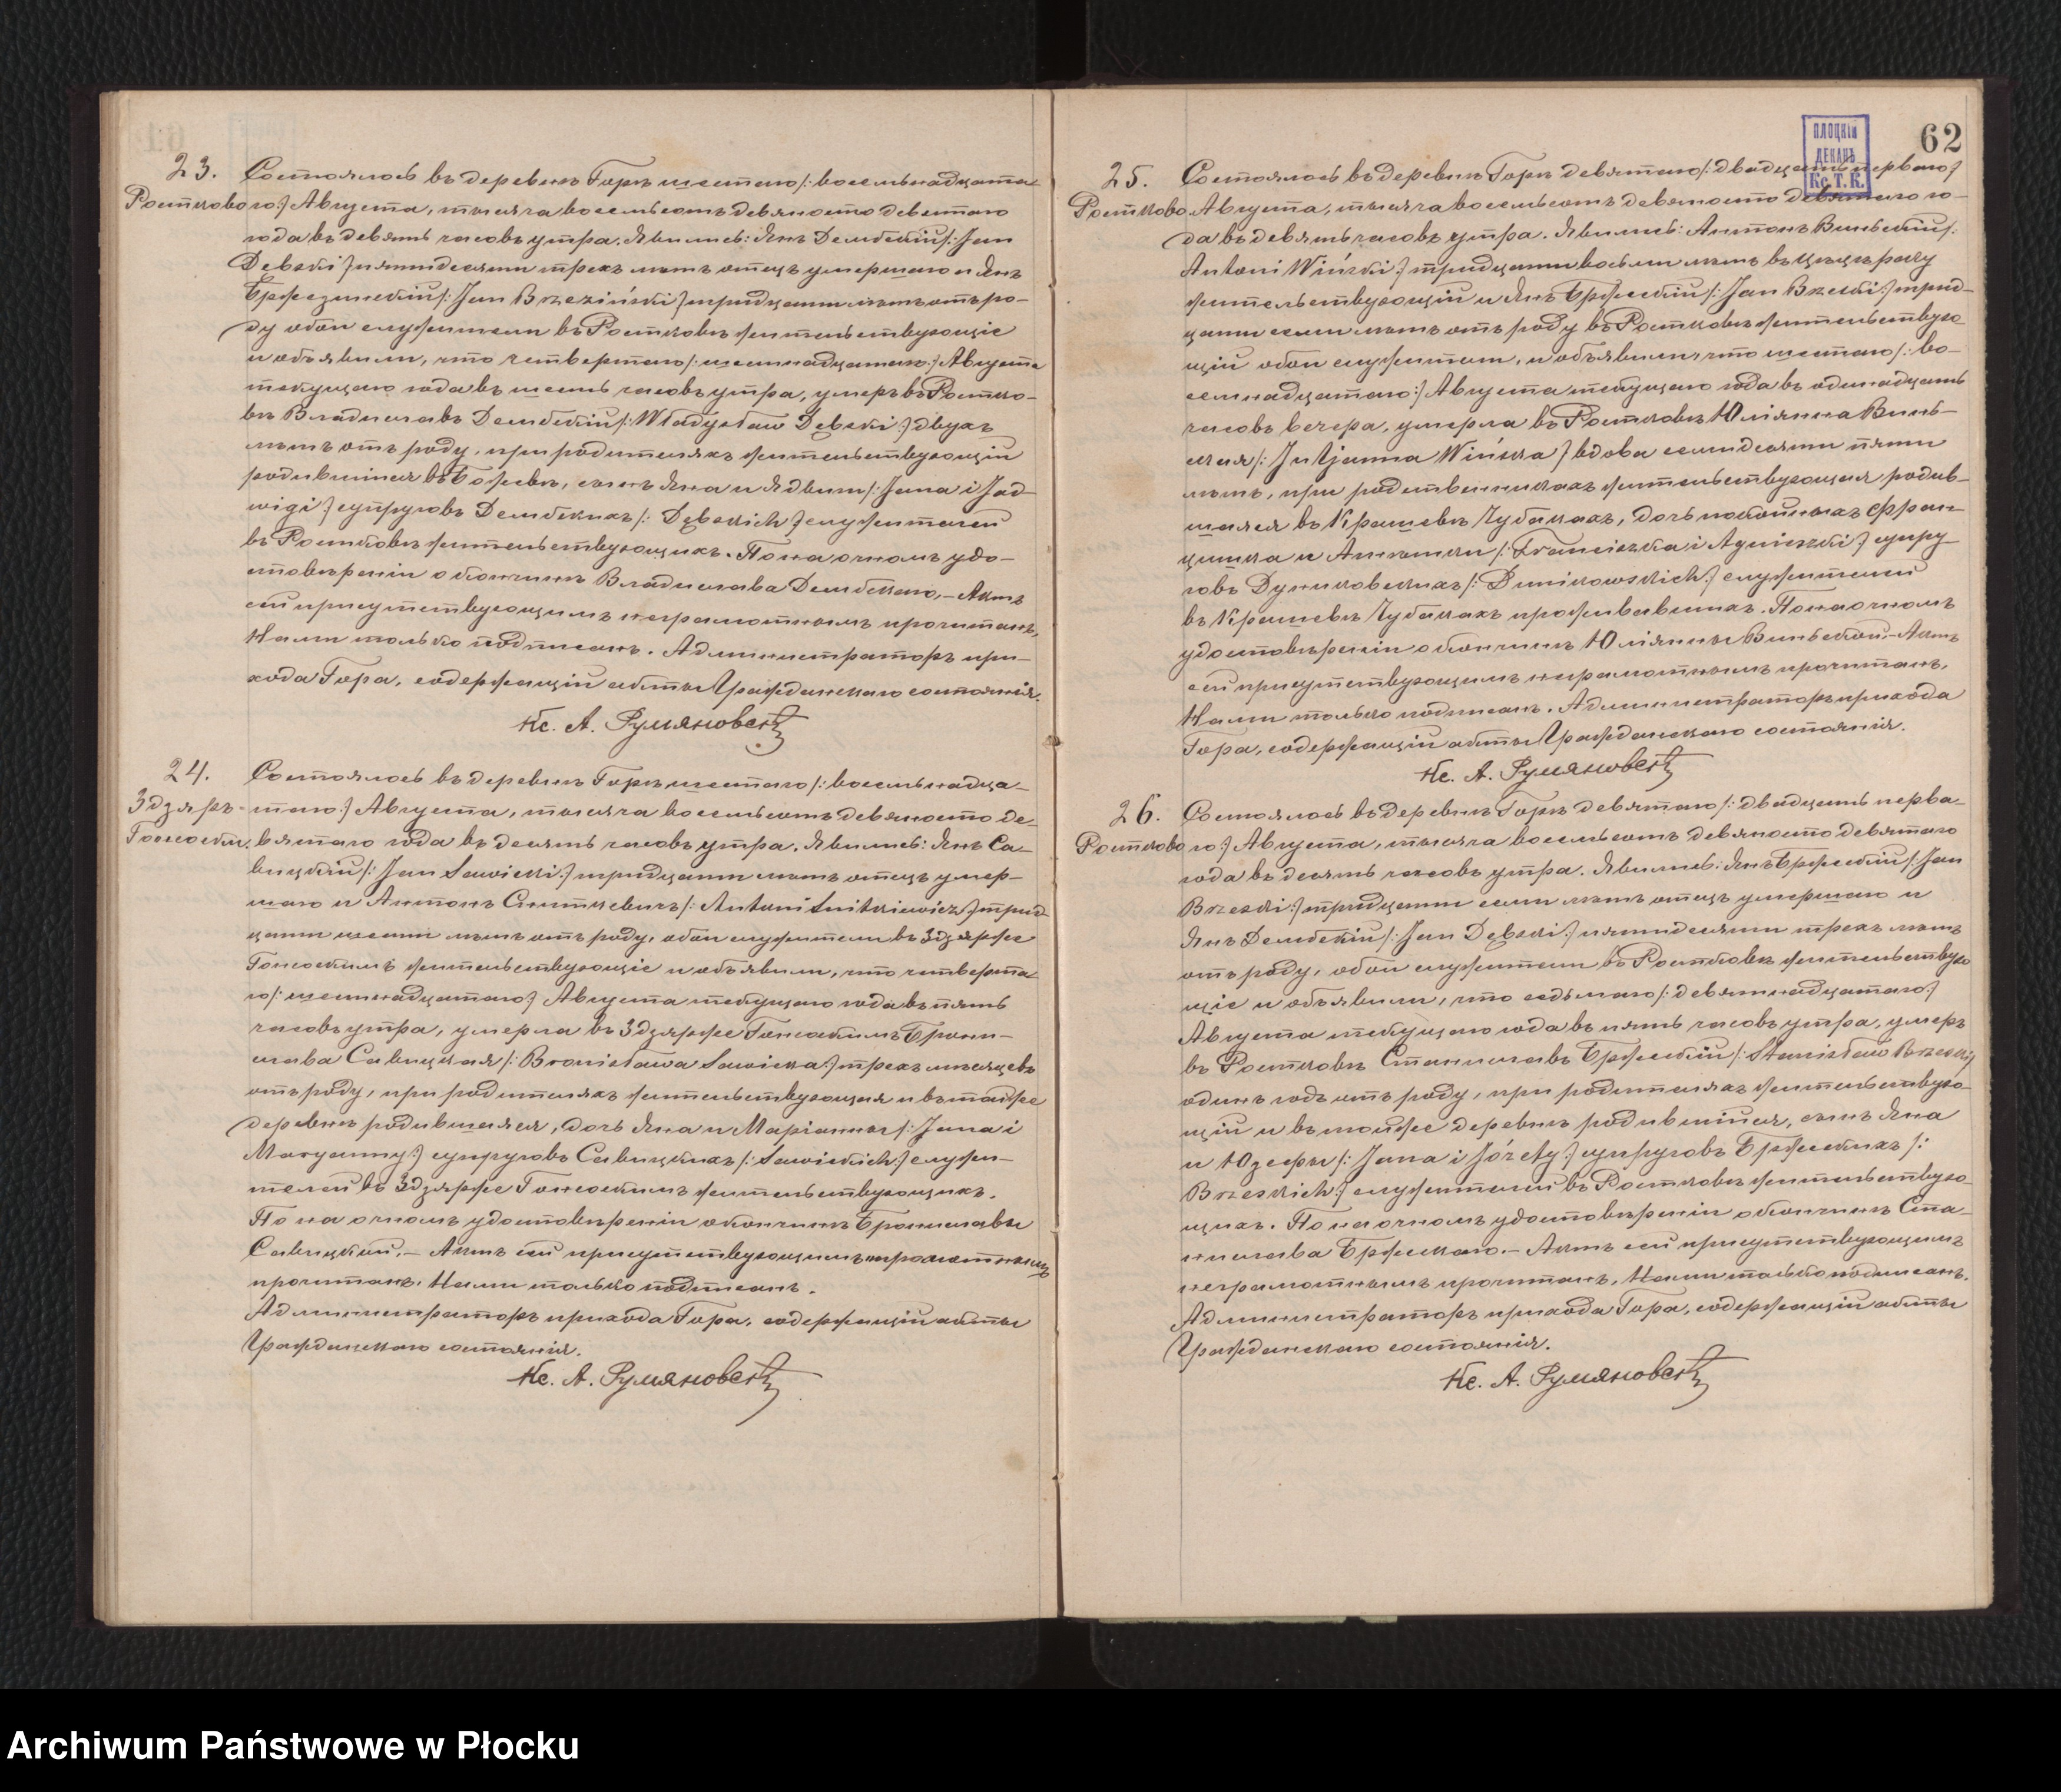 23.
Ростково
Состоялось въ деревнѣ Горѣ шестаго /: восемьнадцата-
го :/ Августа, тысяча восемьсотъ девяносто девятаго
года въ девять часовъ утра. Явились: Янъ Дембскій /: Jan
Dębski :/ пятидесяти трехъ лѣтъ отецъ умершаго и Янъ
Бржезинскій /: Jan Brzeziński :/ тридцати лѣтъ отъ ро-
ду оба служители въ Ростковѣ жительствующіе
и объявили, что четвертаго /: шестнадцатаго :/ Августа
текущаго года въ шесть часовъ утра, умеръ въ Ростко-
вѣ Владиславъ Дембскій /: Władysław Dębski :/ двухъ
лѣтъ отъ роду, при родителяхъ жительствующій
родившійся въ Божевѣ, сынъ Яна и Ядвиги /: Jana i Jad-
wigi :/ супруговъ Дембскихъ /: Dębskich :/ служителей
въ Ростковѣ жительствующихъ. По наочномъ удо-
стовѣреніи о кончинѣ Владислава Дембскаго, – Актъ
сей присутствующимъ неграмотнымъ прочитанъ,
Нами только подписанъ. Администраторъ при-
хода Гора, содержащій акты Гражданскаго состоянія.
Кс. А. Румяновскій
24.
Здзяръ-
Гонсоскимъ
Состоялось въ деревнѣ Горѣ шестаго /: восемьнадца-
таго :/ Августа, тысяча восемьсотъ девяносто де-
вятаго года въ десять часовъ утра. Явились: Янъ Са-
вицкій /: Jan Sawicki :/ тридцати лѣтъ отецъ умер-
шаго и Антонъ Сниткевичъ /: Antoni Snitkiewicz :/ трид-
цати шести лѣтъ отъ роду, оба служители въ Здзярже
Гонсоскимъ жительствующіе и объявили, что четверта-
го /: шестнадцатаго :/ Августа текущаго года въ пять
часовъ утра, умерла въ Здзярже Гонсоскимъ Брони-
слава Савицкая /: Bronisława Sawicka :/ трехъ мѣсяцевъ
отъ роду, при родителяхъ жительствующая и въ тойже
деревнѣ родившаяся, дочь Яна и Маріанны /: Jana i
Maryanny :/ супруговъ Савицкихъ /: Sawickich :/ служи-
телей въ Здзярже Гонсоскимъ жительствующихъ.
По наочномъ удостовѣреніи о кончинѣ Брониславы
Савицкой. – Актъ сей присутствующимъ неграмотнымъ
прочитанъ, Нами только подписанъ.
Администраторъ прихода Гора, содержащій акты
Гражданскаго состоянія.
Кс. А. Румяновскій
62
ПЛОЦКІЙ
ДЕКАНЪ
Кс. Т. К.
25.
Ростково
Состоялось въ деревнѣ Горѣ девятаго /: двадцать перваго :/
Августа, тысяча восемьсотъ девяносто девятаго го-
да въ девять часовъ утра. Явились: Антонъ Виньскій /:
Antoni Wiński :/ тридцати восьми лѣтъ въ
жительствующій и Янъ Бржескій /: Jan Brzeski :/ трид-
цати семи лѣтъ отъ роду въ Ростковѣ жительствую-
щій оба служители, и объявили, что шестаго /: во-
семнадцатаго :/ Августа текущаго года въ одинадцать
часовъ вечера, умерла въ Ростковѣ Юліянна Винь-
ская /: Juljanna Wińska :/ вдова семидесяти пяти
лѣтъ, при родственникахъ жительствующая родив-
шаяся въ Крашевѣ Чубакахъ, дочь покойныхъ Фран-
цишка и Агнешки /: Franciszka i Agnieszki :/ супру-
говъ Дуниковскихъ /: Dunikowskich :/ служителей
въ Крашевѣ Чубакахъ проживавшихъ. По наочномъ
удостовѣреніи о кончинѣ Юліянны Виньской. – Актъ
сей присутствующимъ неграмотнымъ прочитанъ,
Нами только подписанъ. Администраторъ прихода
Гора, содержащій акты Гражданскаго состоянія.
Кс. А. Румяновскій
26.
Ростково
Состоялось въ деревнѣ Горѣ девятаго /: двадцать перва-
го :/ Августа, тысяча восемьсотъ девяносто девятаго
года въ десять часовъ утра. Явились: Янъ Бржескій /: Jan
Brzeski :/ тридцати семи лѣтъ отецъ умершаго и
Янъ Дембскій /: Jan Dębski :/ пятидесяти трехъ лѣтъ
отъ роду, оба служители въ Ростковѣ жительствую-
щіе и объявили, что седьмаго /: девятнадцатаго :/
Августа текущаго года въ пять часовъ утра, умеръ
въ Ростковѣ Станиславъ Бржескій /: Stanisław Brzeski :/
одинъ годъ отъ роду, при родителяхъ жительствую-
щій и въ тойже деревнѣ родившійся, сынъ Яна
и Юзефы /: Jana i Józefy :/ супруговъ Бржескихъ /:
Brzeskich :/ служителей въ Ростковѣ жительствую-
щихъ. По наочномъ удостовѣреніи о кончинѣ Ста-
нислава Бржескаго. – Актъ сей присутствующимъ
неграмотнымъ прочитанъ, Нами только подписанъ.
Администраторъ прихода Гора, содержащій акты
Гражданскаго состоянія.
Кс. А. Румяновскій
Archiwum Państwowe w Płocku